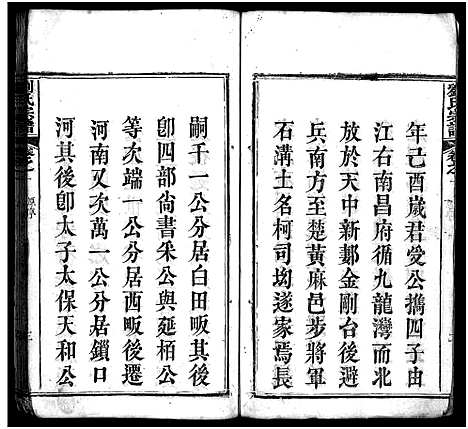 劉氏宗譜
年己酉歲君愛公擕四子由
江右南昌府循九龍灣而北
放於天中新鄴金剛台後避
兵南方至楚黃麻邑步將軍
石溝土名柯司坳遂家焉長
嗣千一公分居白田畈其後
卽四部尙書采公與延栢公
等次端一公分居西畈後遷
河南又次萬一公分居鎖口
河其後卽太子太保天和公
劉氏宗譜